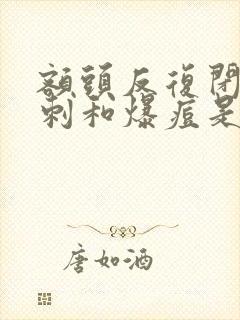 額頭反復閉
刺和爆痘是
唐如酒